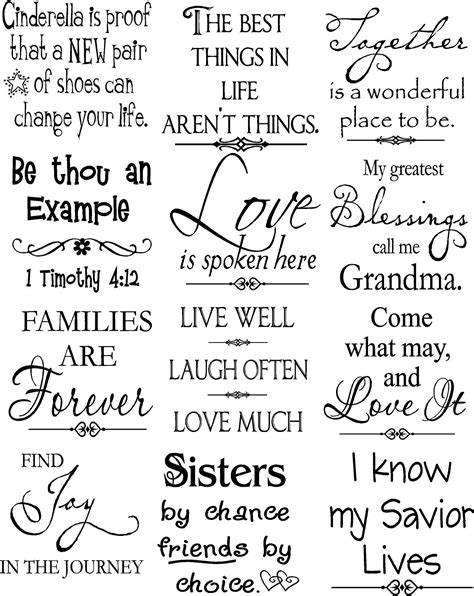 Cinderella is proof
that a NEW pair
of shoes can
change your life.
THE BEST
THINGS IN
LIFE
AREN'T THINGS.
Together
is a wonderful
place to be.
Be thou an
Example
1 Timothy 4:12
Love
is spoken here
My greatest
Blessings
call me
Grandma.
FAMILIES
ARE
Forever
LIVE WELL
LAUGH OFTEN
LOVE MUCH
Come
what may,
and
Love It
FIND
Joy
IN THE JOURNEY
Sisters
by chance
friends by
choice.
I know
my Savior
Lives